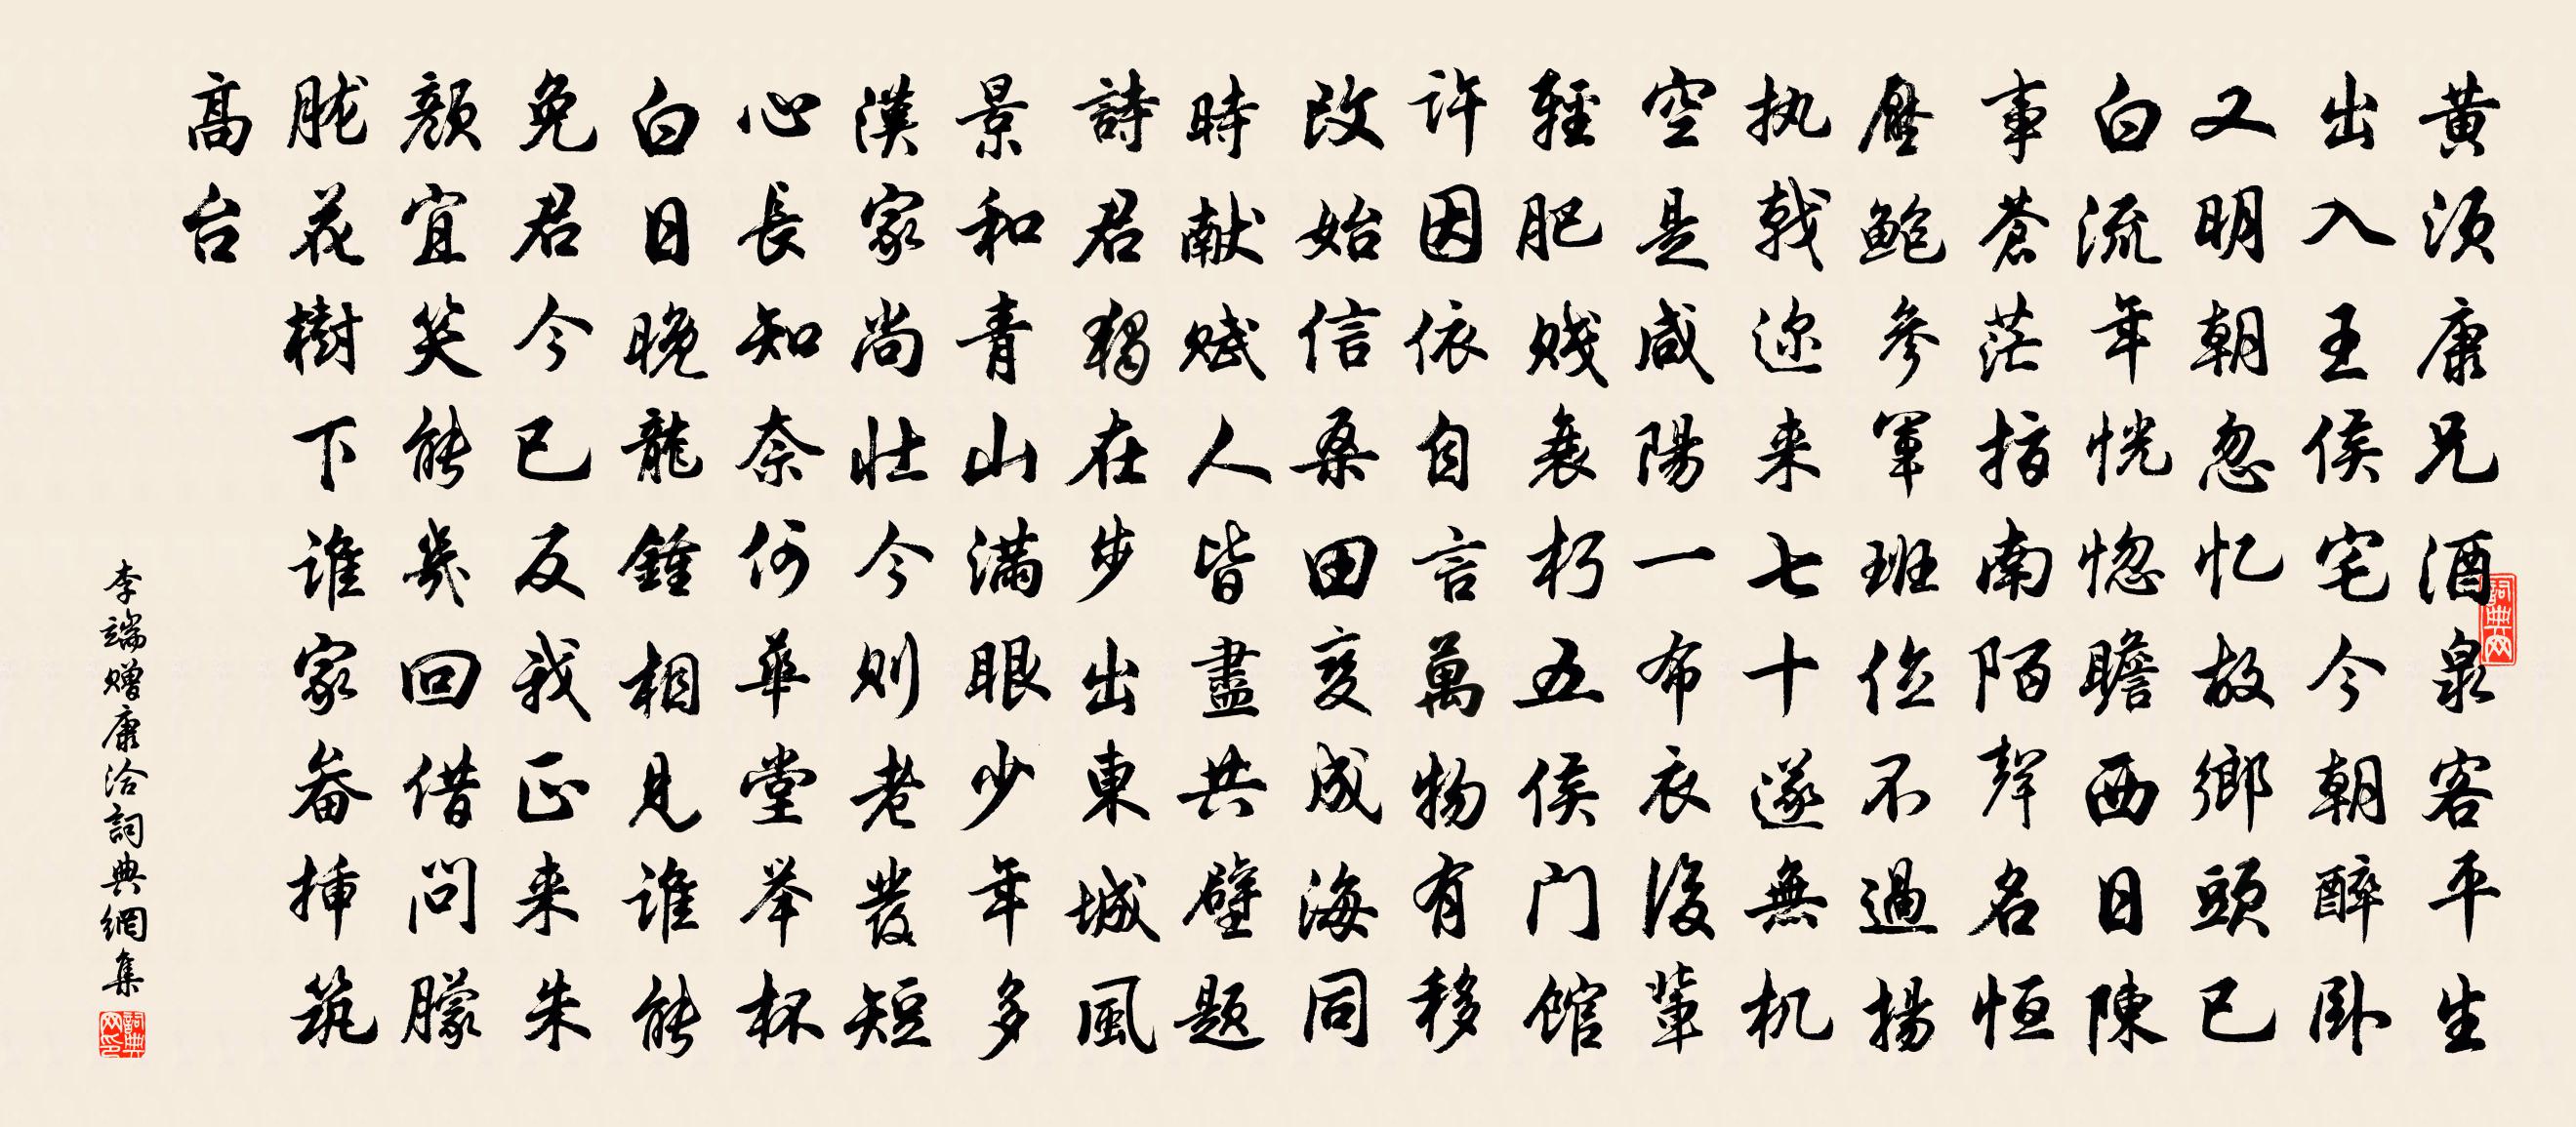 黄须康兄酒泉客平生
出入王侯宅今朝醉卧
又明朝忽忆故鄉頭已
白流年恍惚瞻西日陳
事蒼茫指南陌聲名恒
壓鮑參軍班位不過揚
执戟迩来七十遂無机
空是咸陽一布衣後輩
輕肥贱衰朽五侯门馆
许因依自言萬物有移
改始信桑田变成海同
時献赋人皆盡共壁题
詩君獨在步出東城風
景和青山滿眼少年多
漢家尚壮今则老發短
心長知奈何華堂举杯
白日晚龍鍾相見谁能
免君今已反我正来朱
颜宜笑能幾回借問朦
胧花樹下谁家畚插筑
高台
李端赠康洽詞典網集
詞典网
詞典网印